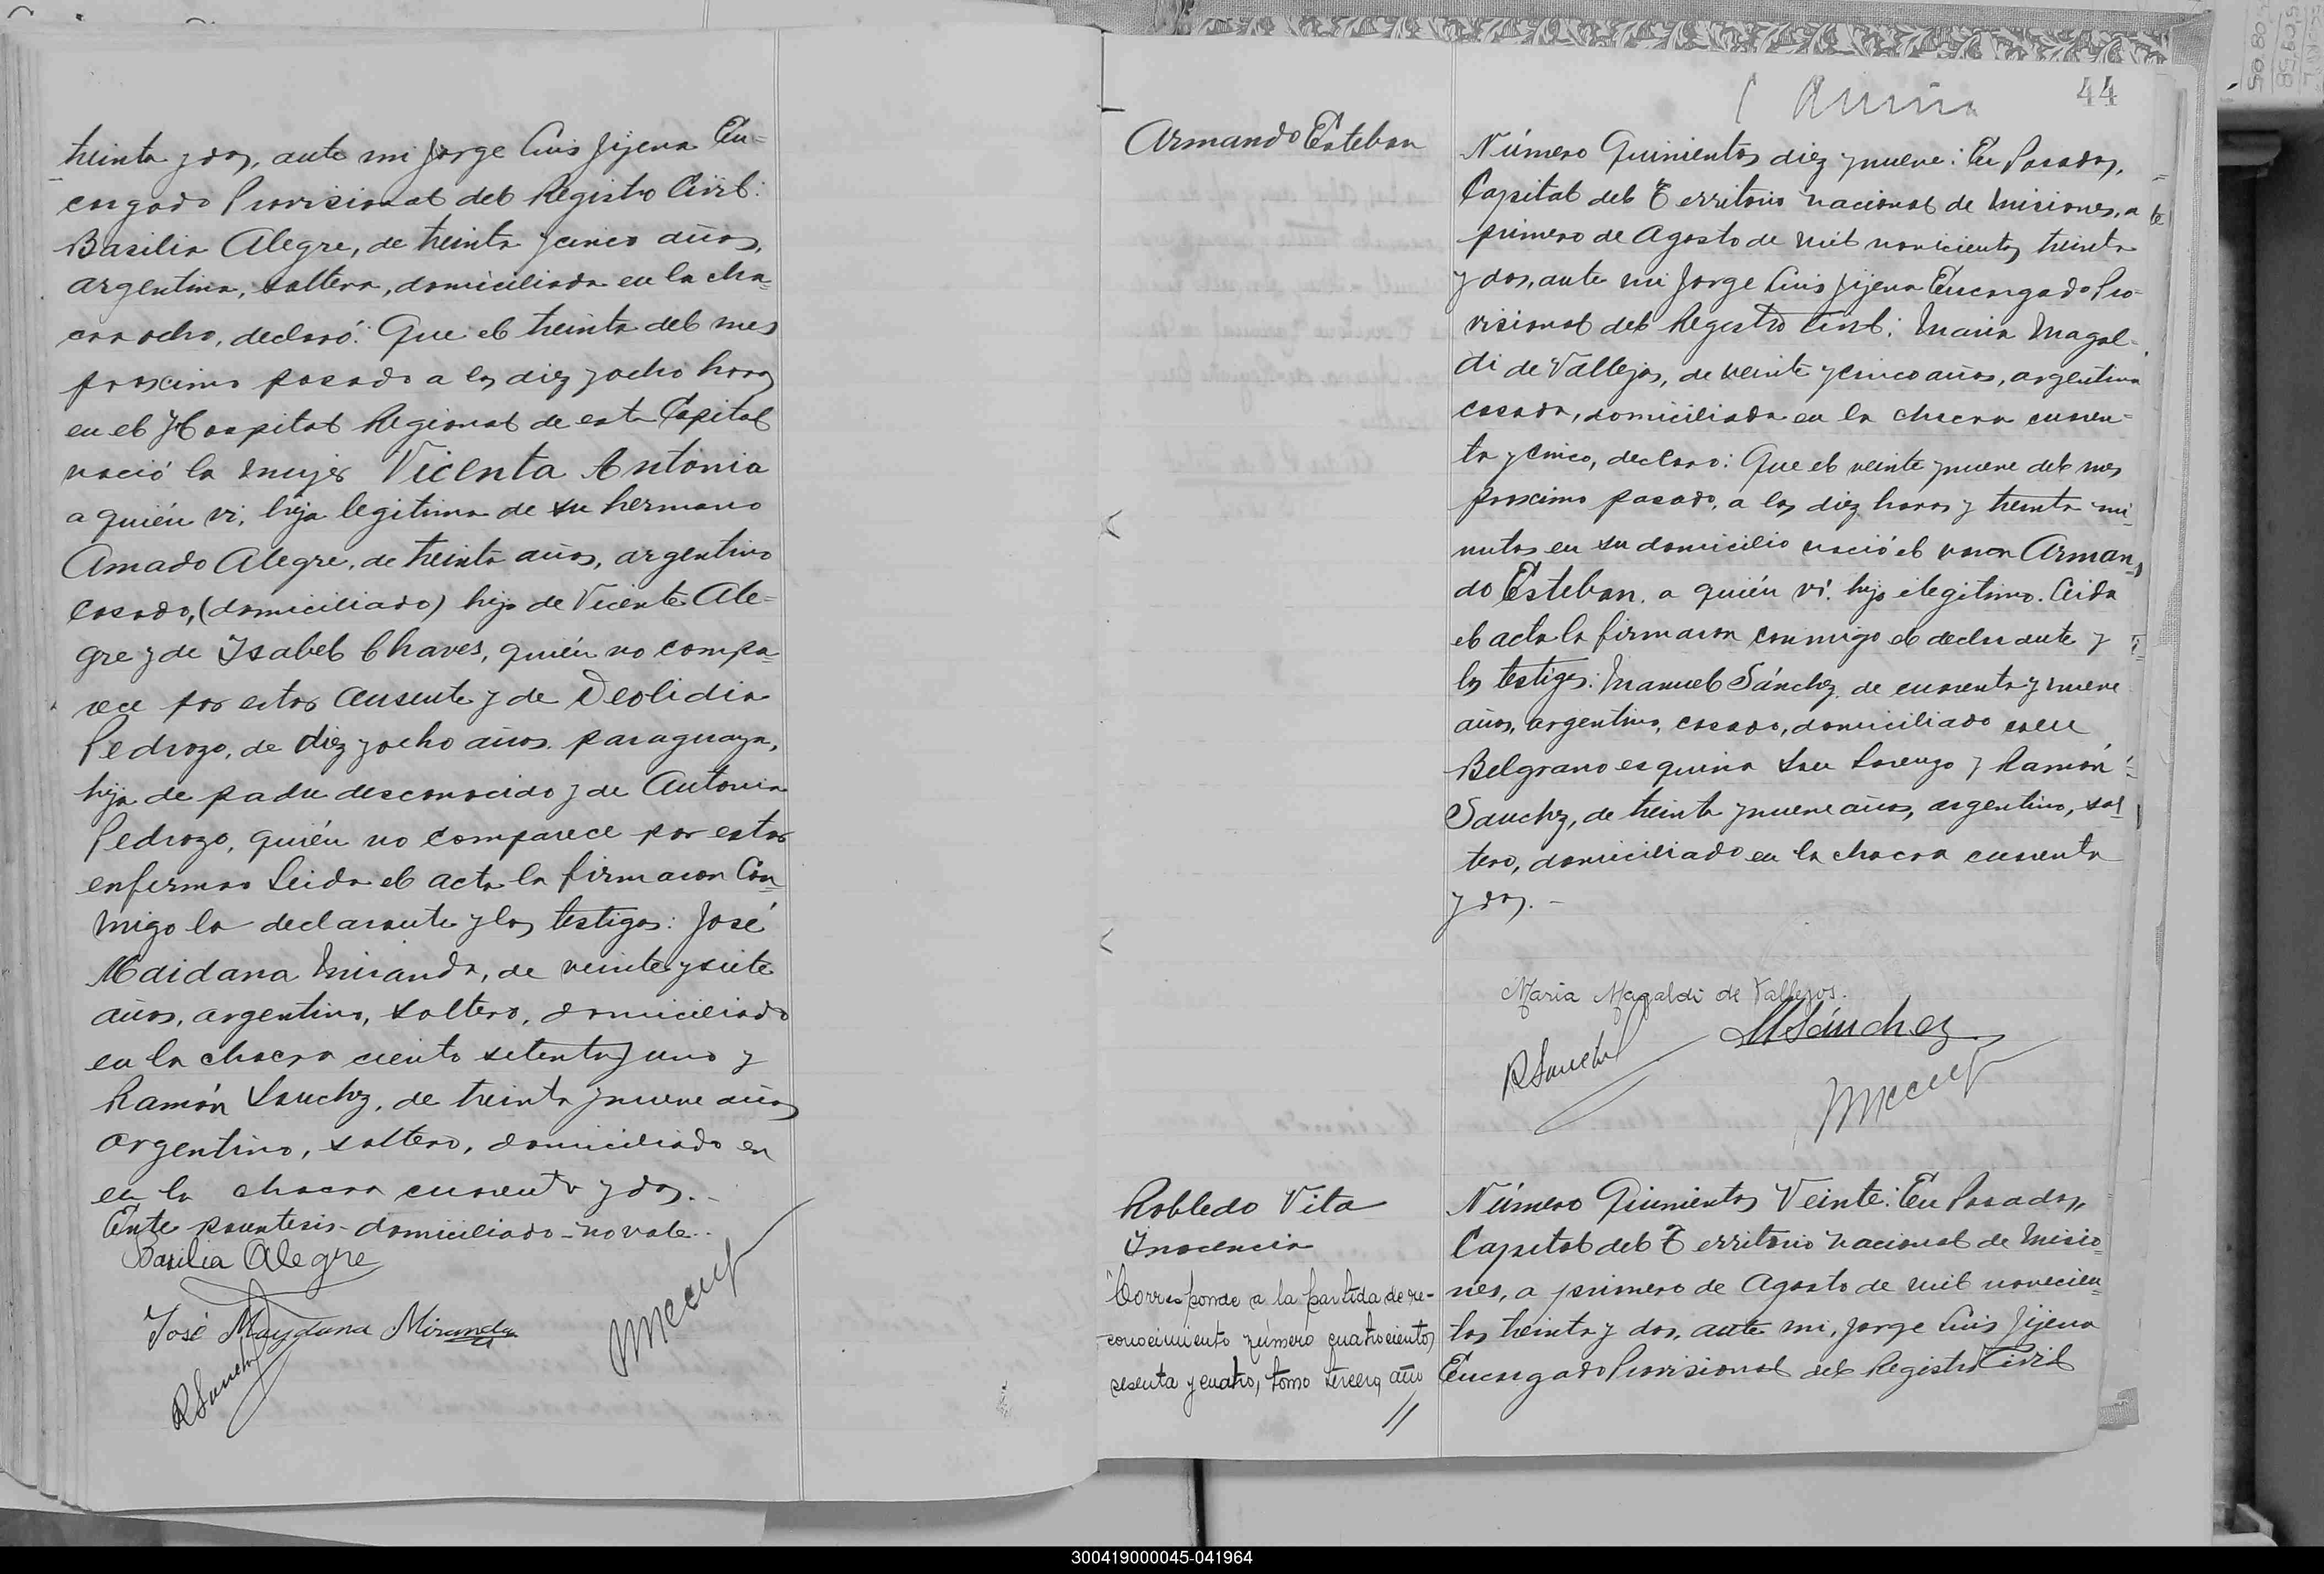 treinta y dos, ante mi Jorge Luis Jijena En=
cargado Provisional del Registro Civil:
Basilia Alegre, de treinta y cinco años,
argentina, soltera, domiciliada en la cha=
cra ocho, declaró: Que el treinta del mes
proximo pasado a las diez y ocho horas
en el Hospital Regional de esta Capital
nació la mujer Vicenta Antonia
a quién vi, hija legitima de su hermano
Amado Alegre, de treinta años, argentino
casado, (domiciliado) hijo de Vicente Ale=
gre y de Isabel Chaves, quién no compa=
rece por estar ausente y de Deolidia
Pedrozo, de diez y ocho años, paraguaya,
hija de padre desconocido y de Antonia
Pedrozo, quién no comparece por estar
enferma Leida el acta la firmaron Con=
migo la declarante y los testigos: José
Maidana Miranda, de veinte y siete
años, argentino, soltero, domiciliado
en la chacra ciento setenta y uno y
Ramón Sanchez, de treinta y nueve años
argentino, soltero, domiciliado en
en la chacra cuarenta y dos.-
Ente parentesis-domiciliado-no vale.-
Basilia Alegre
José Maydana Miranda
R Sanchez
44
Armando Esteban
Número Quinientos diez y nueve: En Posadas,
Capital del Territorio nacional de Misiones, a
primero de Agosto de mil novicientos treinta
y dos, ante mi Jorge Luis Jijena Encargado Pro=
visional del Registro Civil: Maria Magal=
di de Vallejos, de veinte y cinco años, argentina
casada, domiciliada en la chacra cuaren=
ta y cinco, declaro: Que el veinte y nueve del mes
proximo pasado, a las diez horas y treinta mi=
nutos en su domicilio nació el varon Arman=
do Esteban, a quién vi, hijo ilegitimo. Leida
el acta la firmaron conmigo el declarante y
los testigos: Manuel Sánchez, de cuarenta y nueve
años, argentino, casado, domiciliado calle
Belgrano esquina San Lorenzo y Ramón
Sanchez, de treinta y nueve años, argentino, sol=
tero, domiciliado en la chacra cuarenta
y dos.-
Maria Magaldi de Vallejos.
M Sánchez
R Sanchez
Robledo Vita
Inocencia
"Corresponde a la partida de re-
conocimiento número cuatrocientos
sesenta y cuatro, tomo tercero, año
//
Número Quinientos Veinte: En Posadas,
Capital del Territorio nacional de Misio=
nes, a primero de Agosto de mil novecien=
tos treinta y dos, ante mi, Jorge Luis Jijena
Encargado Provisional del Registro Civil
300419000045-041964